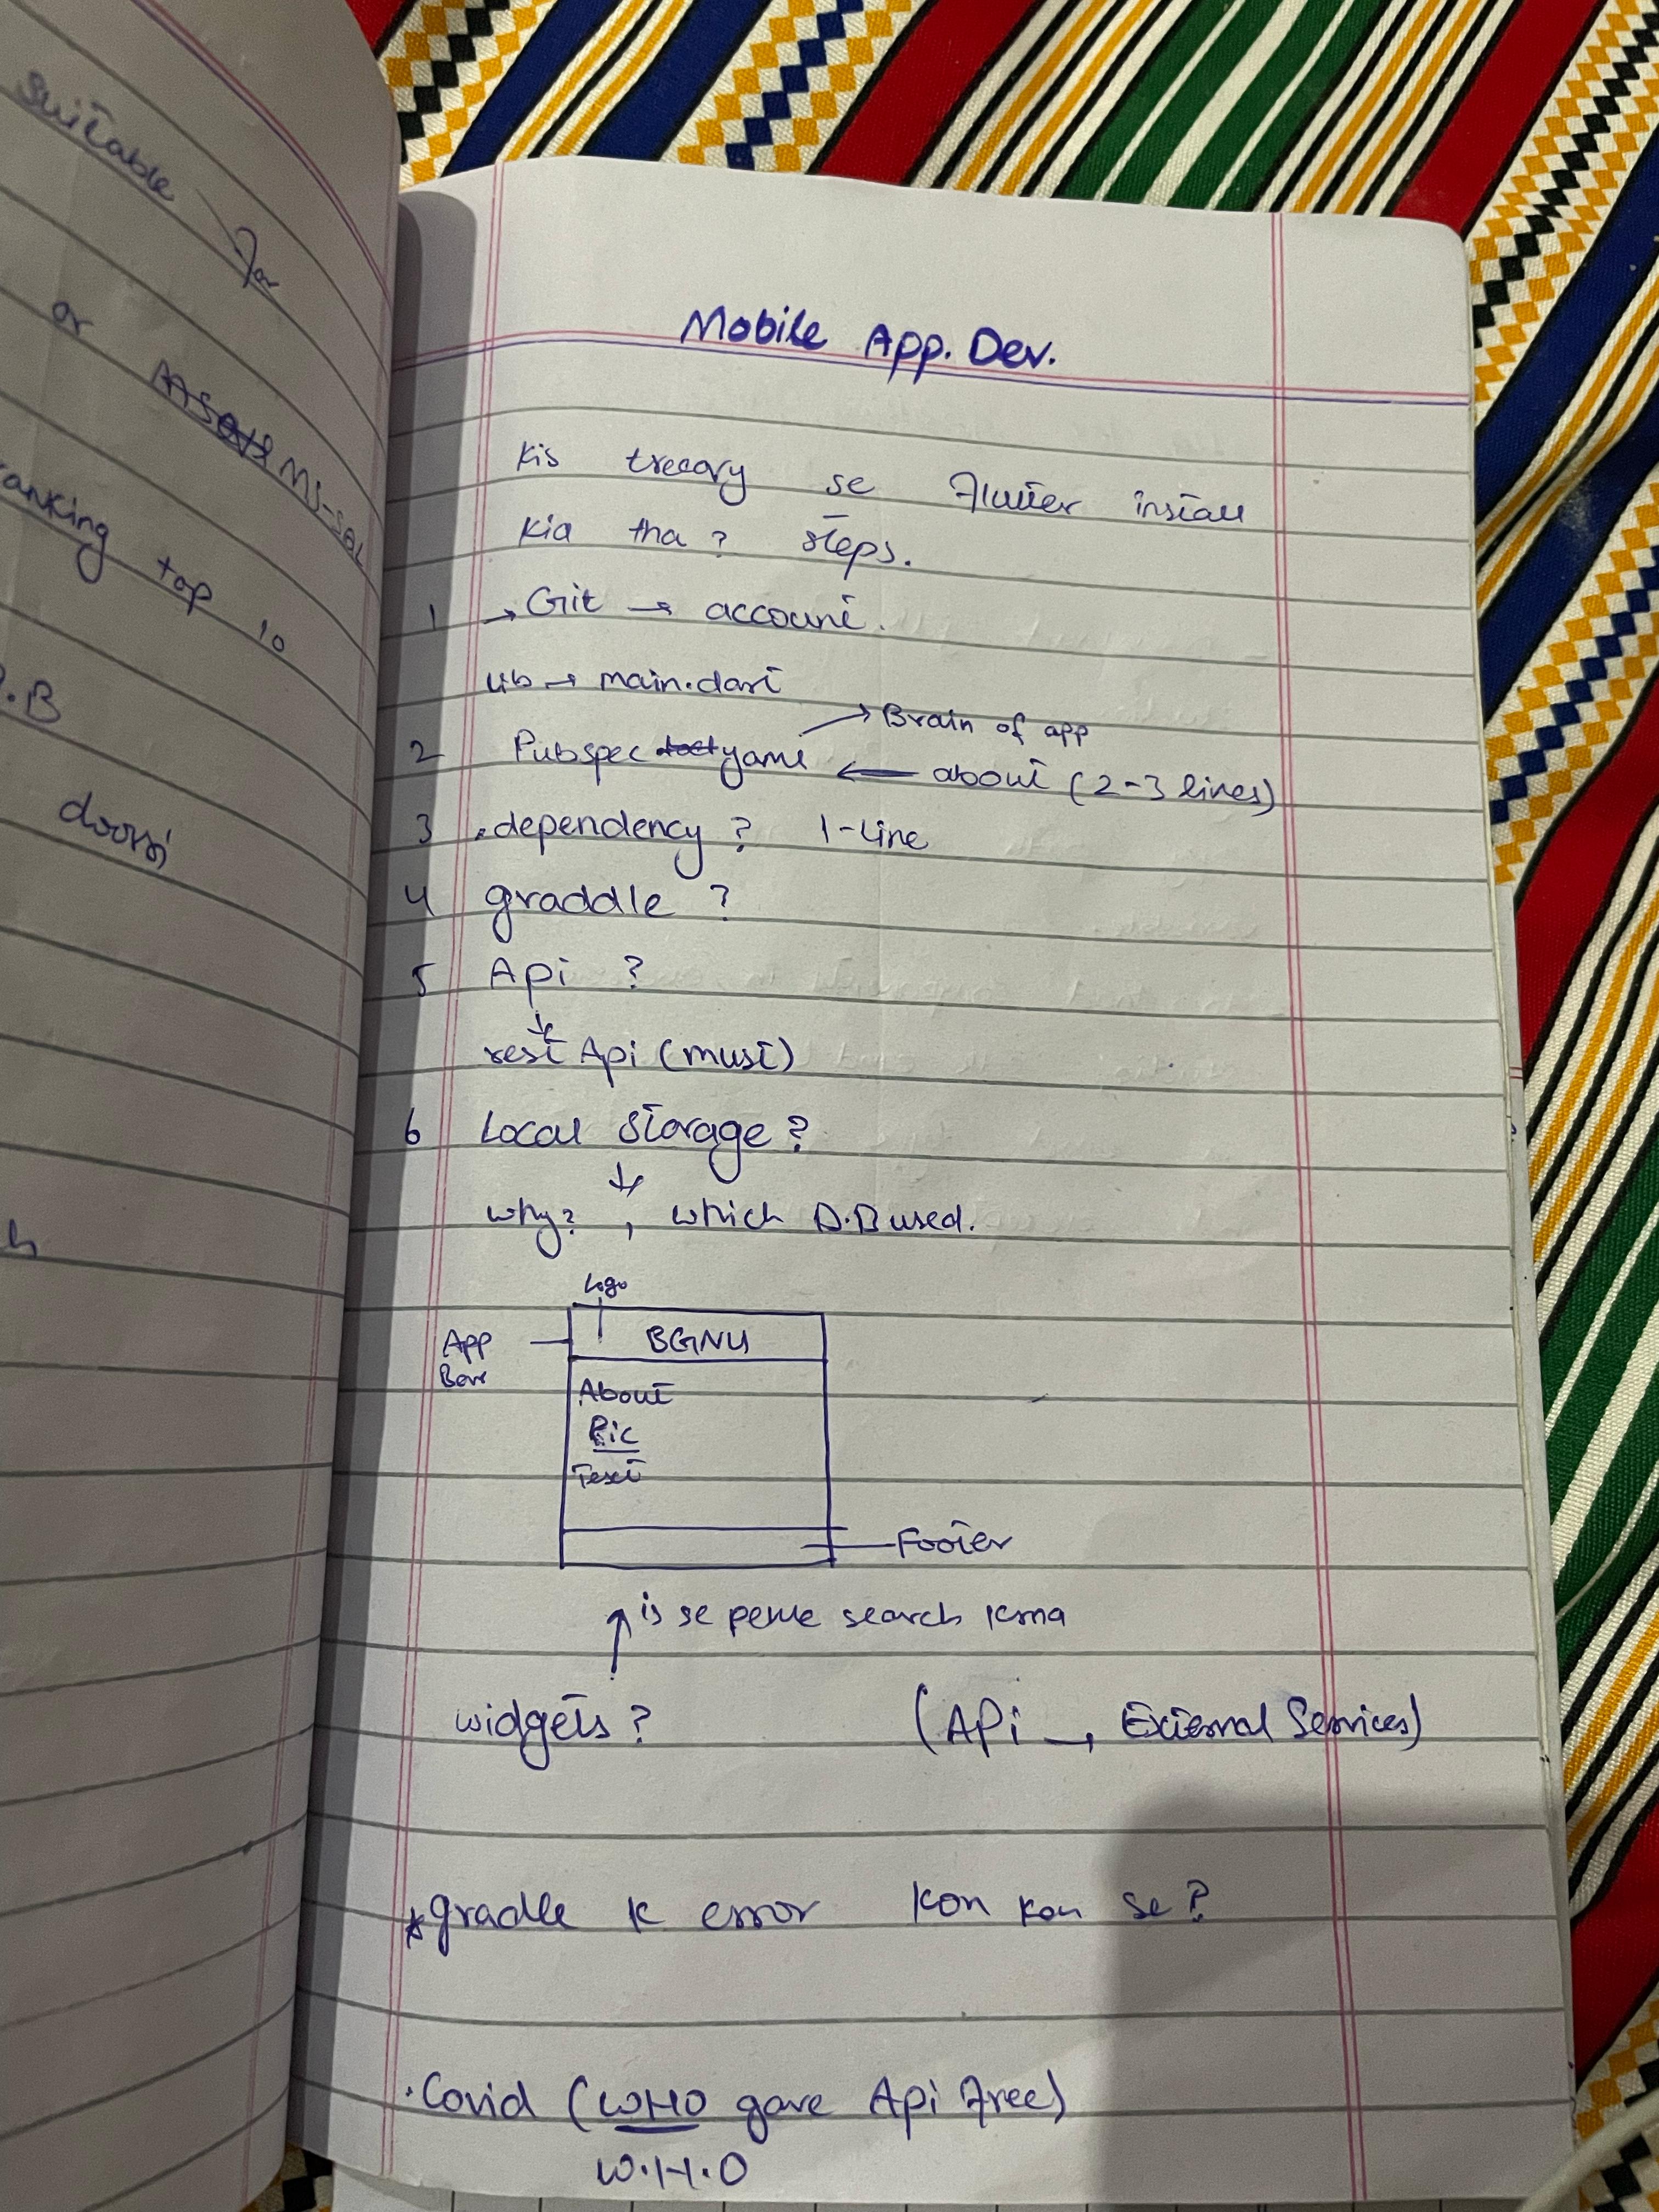 suitable for
or MS-SQL
ranking top 10
D.B
doosri
Mobile App. Dev.
Kis treeavy se Flutter install
Kia tha? steps.
1 → Git → account.
lib → main.dart
→ Brain of app
2 Pubspec yaml ← about (2-3 lines)
3 . dependency? 1-Line
4 graddle ?
5 Api ?
↓
rest Api (must)
6 Local Storage?
↓
why? , which D.B used.
Logo
App Bar
BGNU
About
Pic
Text
Footer
↑ is se pehle search krna
widgets? (APi → External Services)
* gradle k error kon kon se?
. Covid (WHO gave Api free)
W.H.O